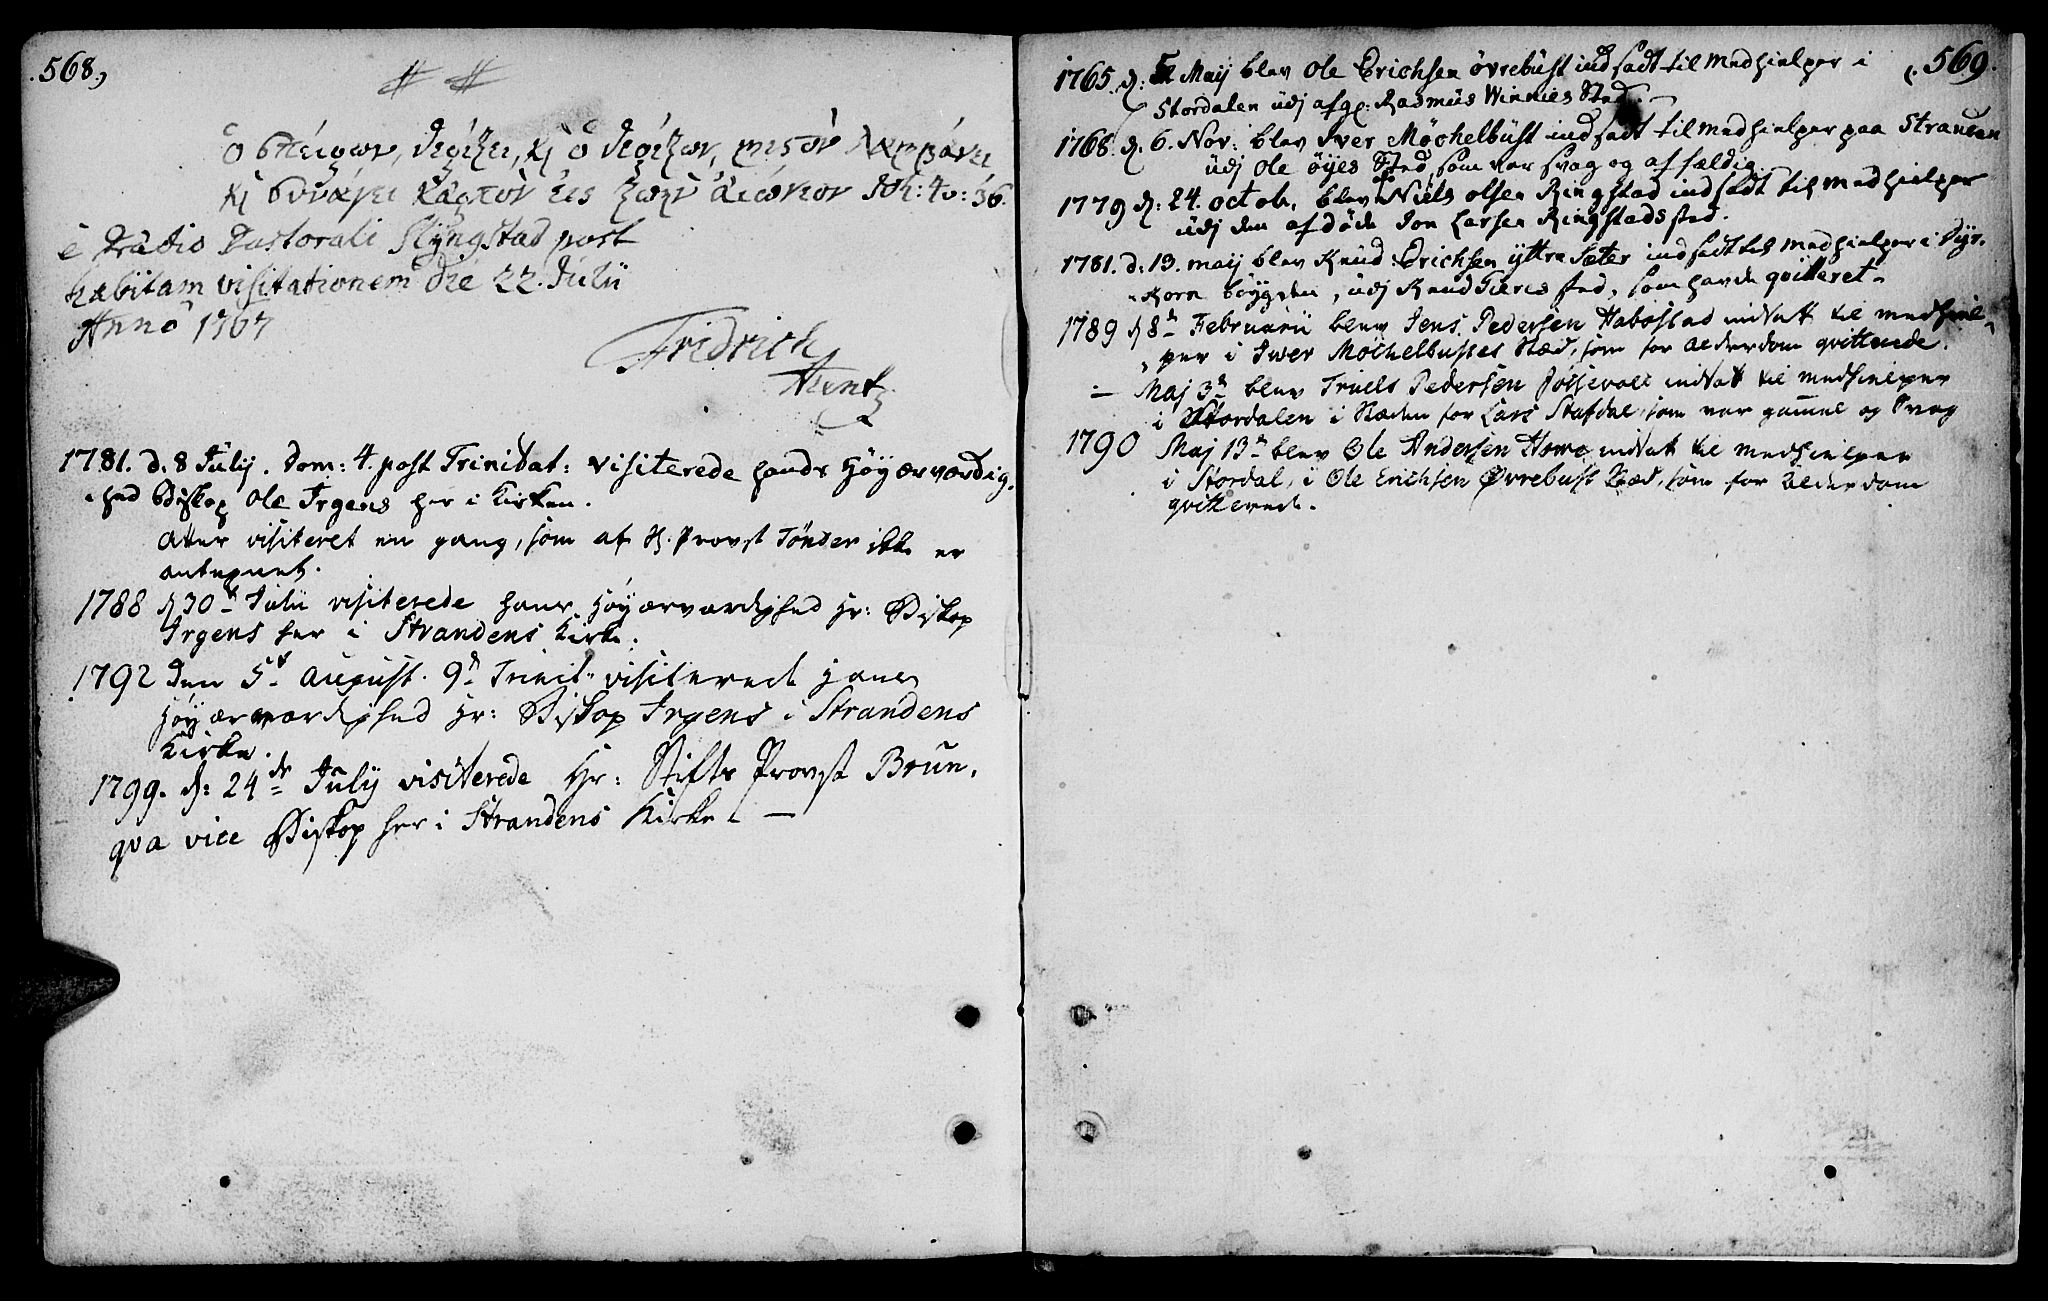 568.
# #
ὁ σπείρων, θερίζει, κ ὁ θερίζων, μισθὸν λαμβάνει
κ συνάγει καρπὸν εἰς ζωὴν αἰώνιον Joh: 4v: 36.
è Prædio Pastorali Slyngstad post
habitam visitationem die 22. Julii
Anno 1767
Fridrich
Arentz
1781. d: 8 July. Dom: 4. post Trinitat: visiterede hands Høyærværdig-
hed Biskop Ole Irgens her i Kirken.
atter visiteret en gang, som af H. Provst Tønder ikke er
antegnet.
1788 d 30t Julii visiterede hans Høyærværdighed Hr: Biskop
Irgens her i Strandens Kirke.
1792 Den 5t August. 9d Trinit: visiterede Hans
Høyærværdighed Hr: Biskop Irgens i Strandens
Kirke.
1799. d: 24de July visiterede Hr: Stifts Provst Brun,
qva vice Biskop her i Strandens Kirke. —
569.
1765. d: Maij blev Ole Erichsen Øvrebust indsadt til Medhielper i
Stordalen udj afg: Rasmus Winnies Sted.
1768. d. 6. Nov: blev Iver Møchelbust indsadt til medhielper paa Stranden
udj Ole Øyes Sted, som var svag og affældig
1779 d: 24. octobr. blev Niels olsen Ringstad indsadt til medhielper
udj den afdøde Jon Larsen Ringstads sted.
1781. d. 13. maij blev Knud Erichsen yttre Sæter indsadt til medhielper i Dyr-
korn bøygden, udj Knud sted, som hande qvitteret.
1789 d 8d Februarii blev Jens Pedersen Habostad indsat til medhiel-
per i Iwer Møchelbustes Stæd, som for Alderdom qvitterede.
— Maj 3d blev Truels Pedersen indsat til medhielper
i Stordalen i Stæden for Lars Stafdal, som var gammel og svag
1790 Maj 13d blev Ole Andersen Howe indsat til medhielper
i Stordal, i Ole Erichsen Øvrebust Stæd, som for Alderdom
qvitterede.